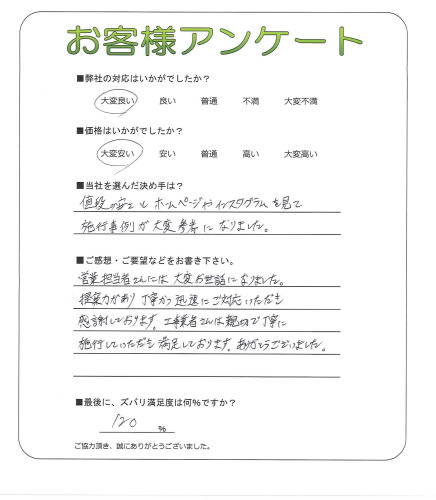 お客様アンケート
■弊社の対応はいかがでしたか？
大変良い 良い 普通 不満 大変不満
■価格はいかがでしたか？
大変安い 安い 普通 高い 大変高い
■当社を選んだ決め手は？
値段の安さとホームページやインスタグラムを見て
施行事例が大変参考になりました。
■ご感想・ご要望などをお書き下さい。
営業担当者さんには大変お世話になりました。
提案力があり丁寧かつ迅速にご対応いただき
感謝しております。工事業者さんは親切で丁寧に
施行していただき満足しております。ありがとうございました。
■最後に、ズバリ満足度は何％ですか？
120 %
ご協力頂き、誠にありがとうございました。